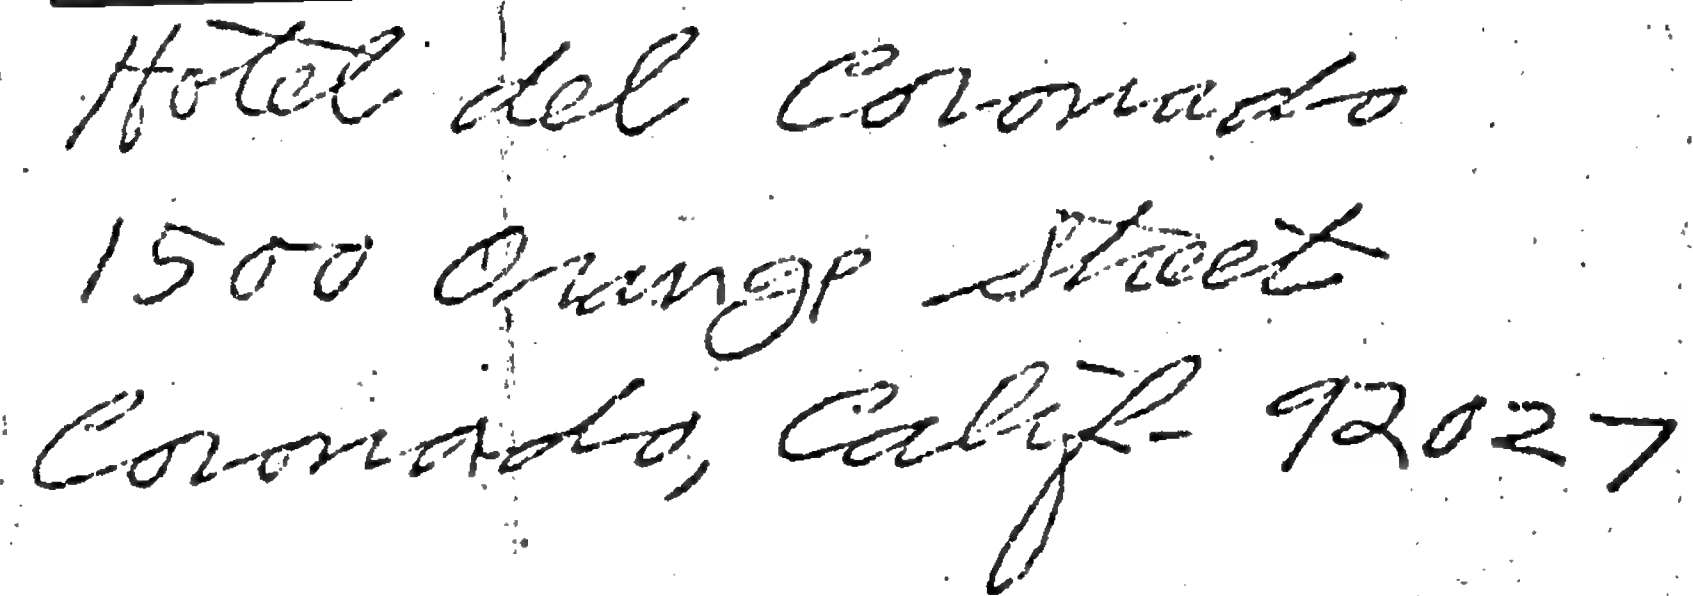 Hotel del Coronado
1500 Orange Street
Coronado, Calif- 92027